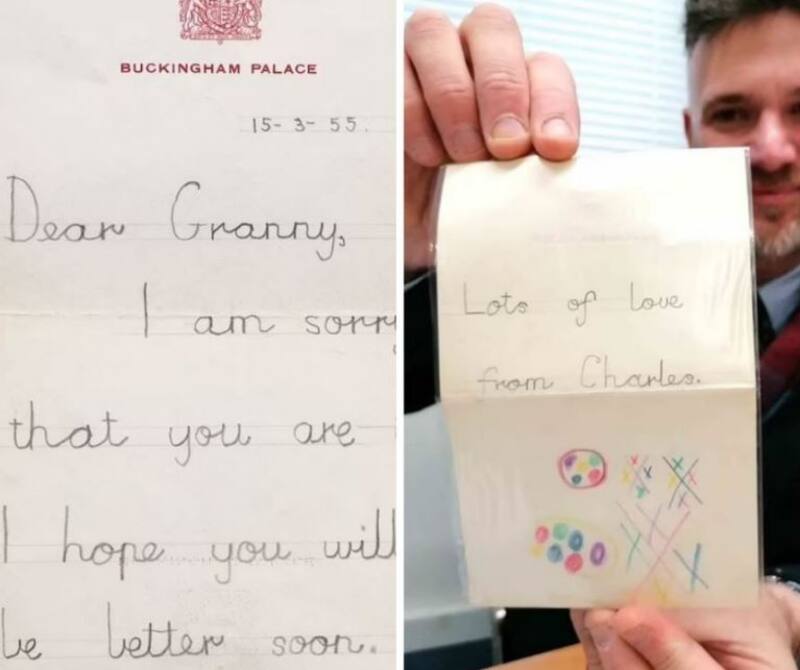 BUCKINGHAM PALACE
15-3-55.
Dear Granny,
I am sorry
that you are
I hope you will
be better soon.
Lots of love
from Charles.